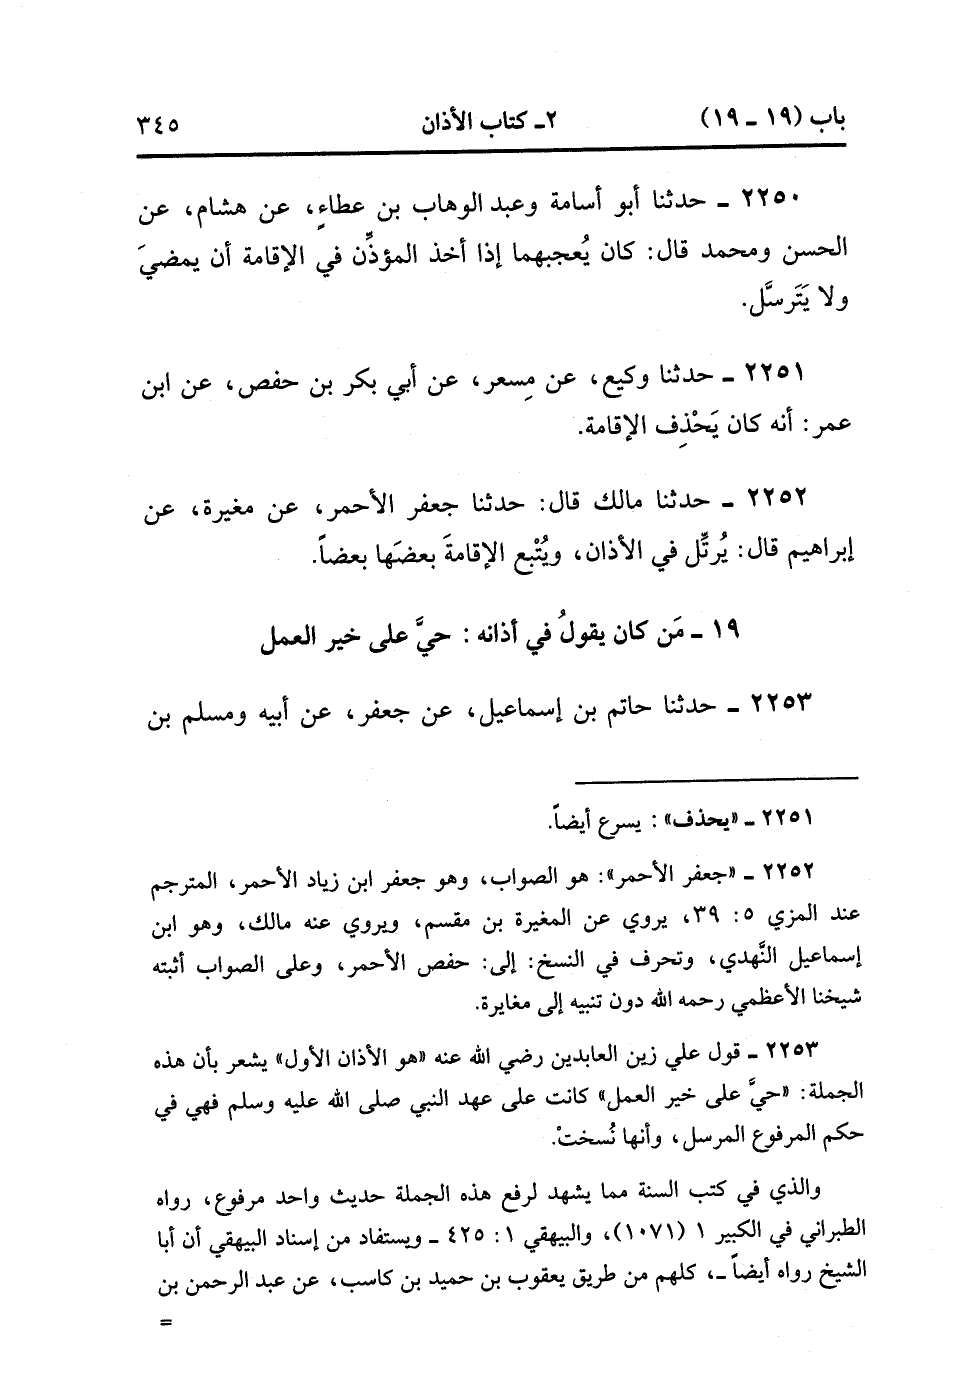 باب (١٩ ـ ١٩) ٢ـ كتاب الأذان ٣٤٥
٢٢٥٠ ـ حدثنا أبو أسامة وعبد الوهاب بن عطاءٍ، عن هشام، عن
الحسن ومحمد قال: كان يُعجبهما إذا أخذ المؤذِّن في الإقامة أن يمضيَ
ولا يَتَرسَّل.
٢٢٥١ ـ حدثنا وكيع، عن مِسعر، عن أبي بكر بن حفص، عن ابن
عمر: أنه كان يَحْذِف الإقامة.
٢٢٥٢ ـ حدثنا مالك قال: حدثنا جعفر الأحمر، عن مغيرة، عن
إبراهيم قال: يُرتِّل في الأذان، ويُتْبع الإقامةَ بعضَها بعضاً.
١٩ ـ مَن كان يقولُ في أذانه: حيَّ على خير العمل
٢٢٥٣ ـ حدثنا حاتم بن إسماعيل، عن جعفر، عن أبيه ومسلم بن
٢٢٥١ ـ «يحذف»: يسرع أيضاً.
٢٢٥٢ ـ «جعفر الأحمر»: هو الصواب، وهو جعفر ابن زياد الأحمر، المترجم
عند المزي ٥: ٣٩، يروي عن المغيرة بن مقسم، ويروي عنه مالك، وهو ابن
إسماعيل النَّهدي، وتحرف في النسخ: إلى: حفص الأحمر، وعلى الصواب أثبته
شيخنا الأعظمي رحمه الله دون تنبيه إلى مغايرة.
٢٢٥٣ ـ قول علي زين العابدين رضي الله عنه «هو الأذان الأول» يشعر بأن هذه
الجملة: «حيَّ على خير العمل» كانت على عهد النبي صلى الله عليه وسلم فهي في
حكم المرفوع المرسل، وأنها نُسختْ.
والذي في كتب السنة مما يشهد لرفع هذه الجملة حديث واحد مرفوع، رواه
الطبراني في الكبير ١ (١٠٧١)، والبيهقي ١: ٤٢٥ ـ ويستفاد من إسناد البيهقي أن أبا
الشيخ رواه أيضاً ـ، كلهم من طريق يعقوب بن حميد بن كاسب، عن عبد الرحمن بن
=